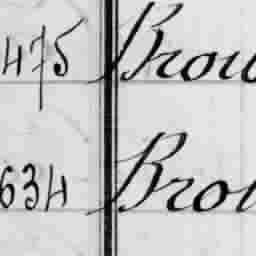 475 Brow
634 Bro